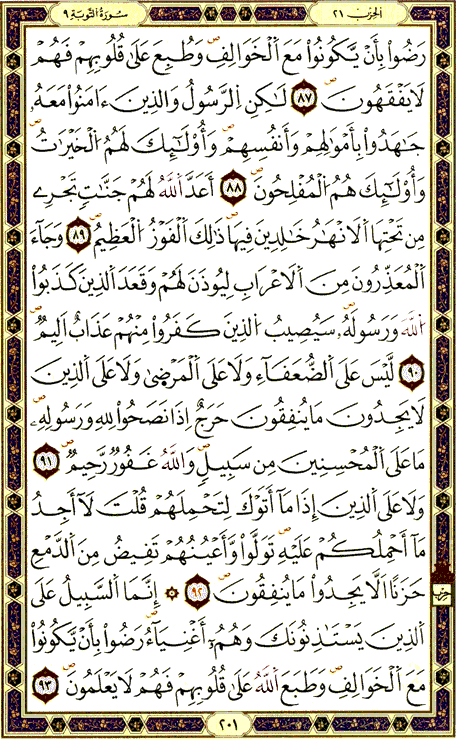 سورة التوبة ٩ الحزب ٢١
رَضُوا۟ بِأَنْ يَّكُونُوا۟ مَعَ اَ۬لْخَوَالِفِ وَطُبِعَ عَلَىٰ قُلُوبِهِمْ فَهُمْ
لَا يَفْقَهُونَ ٨٧ لَٰكِنِ اِ۬لرَّسُولُ وَالذِينَ ءَامَنُوا۟ مَعَهُۥ
جَٰهَدُوا۟ بِأَمْوَٰلِهِمْ وَأَنفُسِهِمْ وَأُو۟لَٰٓئِكَ لَهُمُ اُ۬لْخَيْرَٰتُ
وَأُو۟لَٰٓئِكَ هُمُ اُ۬لْمُفْلِحُونَ ٨٨ أَعَدَّ اَ۬للَّهُ لَهُمْ جَنَّٰتٍ تَجْرِے
مِن تَحْتِهَا اَ۬لَانْهَٰرُ خَٰلِدِينَ فِيهَا ذَٰلِكَ اَ۬لْفَوْزُ اُ۬لْعَظِيمُ ٨٩ وَجَآءَ
اَ۬لْمُعَذِّرُونَ مِنَ اَ۬لَاعْرَابِ لِيُوذَنَ لَهُمْ وَقَعَدَ اَ۬لذِينَ كَذَبُوا۟
اُ۬للَّهَ وَرَسُولَهُۥ سَيُصِيبُ اُ۬لذِينَ كَفَرُوا۟ مِنْهُمْ عَذَابٌ اَلِيمٌ
٩٠ لَّيْسَ عَلَى اَ۬لضُّعَفَآءِ وَلَا عَلَى اَ۬لْمَرْض۪ىٰ وَلَا عَلَى اَ۬لذِينَ
لَا يَجِدُونَ مَا يُنفِقُونَ حَرَجٌ اِذَا نَصَحُوا۟ لِلهِ وَرَسُولِهِۦ
مَا عَلَى اَ۬لْمُحْسِنِينَ مِن سَبِيلٍ وَاللَّهُ غَفُورٌ رَّحِيمٌ ٩١
وَلَا عَلَى اَ۬لذِينَ إِذَا مَآ أَتَوْكَ لِتَحْمِلَهُمْ قُلْتَ لَآ أَجِدُ
مَآ أَحْمِلُكُمْ عَلَيْهِ تَوَلَّوا۟ وَّأَعْيُنُهُمْ تَفِيضُ مِنَ اَ۬لدَّمْعِ
حَزَنًا اَلَّا يَجِدُوا۟ مَا يُنفِقُونَ ٩٢ ۞ إِنَّمَا اَ۬لسَّبِيلُ عَلَى
اَ۬لذِينَ يَسْتَٰذِنُونَكَ وَهُمُۥٓ أَغْنِيَآءُ رَضُوا۟ بِأَنْ يَّكُونُوا۟
مَعَ اَ۬لْخَوَالِفِ وَطَبَعَ اَ۬للَّهُ عَلَىٰ قُلُوبِهِمْ فَهُمْ لَا يَعْلَمُونَ ٩٣
حزب
٢٠١